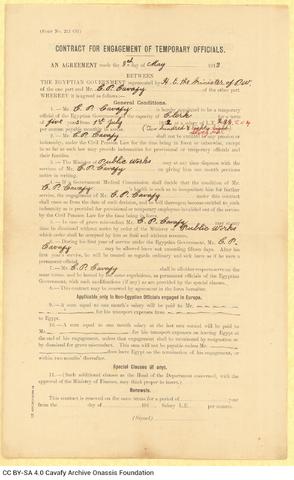 (Form No. 213 (S))
CONTRACT FOR ENGAGEMENT OF TEMPORARY OFFICIALS.
AN AGREEMENT made the 8th day of May 1912
BETWEEN
THE EGYPTIAN GOVERNMENT represented by H.E. the Minister of P.W.
of the one part and Mr. C.P. Cavafy of the other part.
WHEREBY it is agreed as follows:—
General Conditions.
1.—Mr. C.P. Cavafy is hereby continued to be a temporary
official of the Egyptian Government in the capacity of Clerk
per annum payable monthly in arrear.
2.—Mr. C.P. Cavafy shall not be entitled to any pension or
indemnity, under the Civil Pension Law for the time being in force or otherwise, except
in so far as such law may provide indemnities for provisional or temporary officials and
their families.
3.—The Minister of Public Works may at any time dispense with the
services of Mr. C.P. Cavafy on giving him one month previous
notice in writing.
4.—If a Government Medical Commission shall find that the condition of Mr.
C.P. Cavafy health is such as to incapacitate him for further
service, he may be discharged and in such event the present contract
shall cease as from the date of such decision, and he will thereupon become entitled to such
indemnity as is provided for provisional or temporary employees invalided out of the service,
by the Civil Pension Law for the time being in force.
5.—In case of grave misconduct Mr. C.P. Cavafy may at any
time be dismissed without notice by order of the Minister of Public Works
which order shall be accepted by him as final and without recourse.
6.—During his first year of service under the Egyptian Government, Mr. C.P.
Cavafy may be allowed leave not exceeding fifteen days. After his
first year's service, he will be treated as regards ordinary and sick leave as if he were a
permanent official.
7.—Mr. C.P. Cavafy shall in all other respects serve on the same
terms, and be bound by the same regulations, as permanent officials of the Egyptian
Government, with such modifications (if any) as are provided by the special clauses.
8.—This contract may be renewed by agreement in the form hereunder.
Applicable only to Non-Egyptian Officials engaged in Europe.
9.—A sum equal to one month's salary will be paid to Mr.
for his transport expenses from
to Egypt.
10.—A sum equal to one month salary at the last rate earned will be paid to
Mr. for his transport expenses on leaving Egypt at
the end of his engagement, unless that engagement shall be terminated by resignation or
by dismissal for grave misconduct. This sum will not be payable unless Mr.
does leave Egypt on the termination of his engagement, or
within two months thereafter.
Special Clauses (if any).
11.—(Such additional clauses as the Head of the Department concerned, with the
approval of the Ministry of Finance, may think proper to insert.)
Renewals.
This contract is renewed on the same terms for a period of year
from the day of 191 Salary L.E. per annum.
(Signed)
CC BY-SA 4.0 Cavafy Archive Onassis Foundation